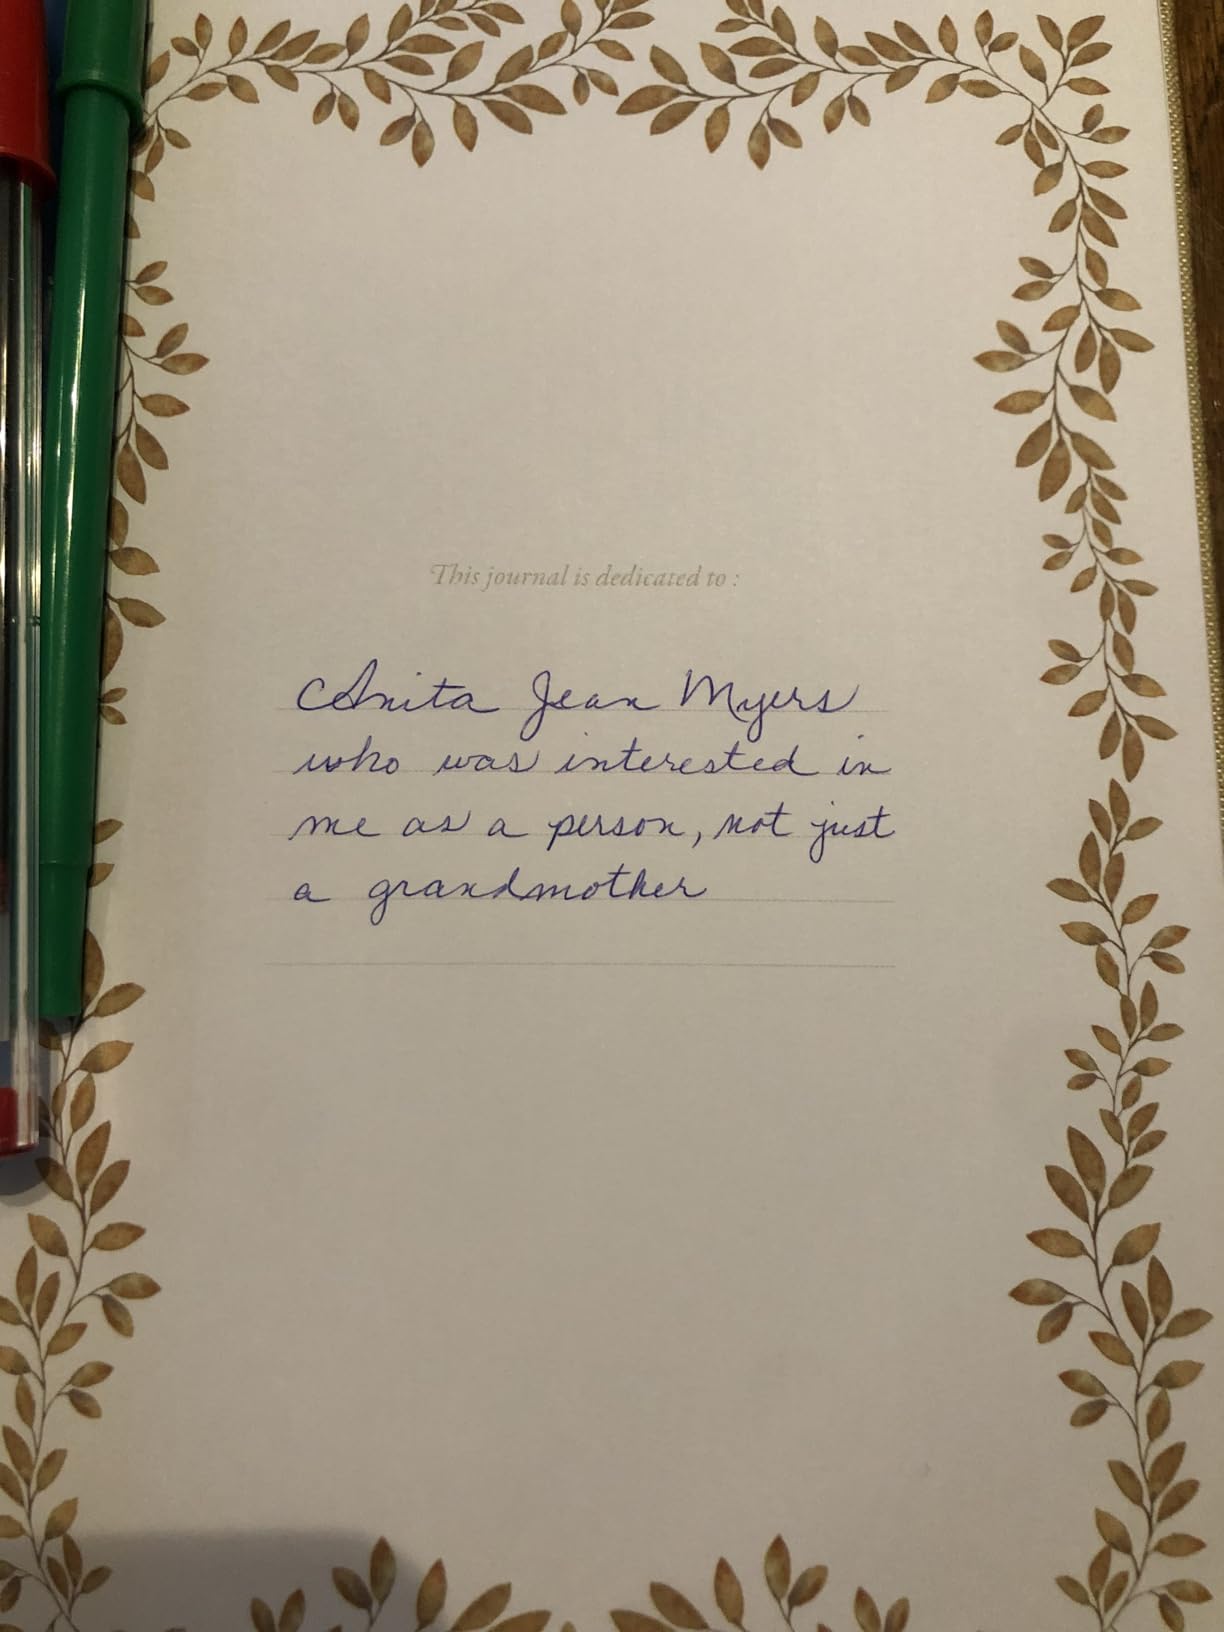 This journal is dedicated to :
Anita Jean Myers
who was interested in
me as a person, not just
a grandmother